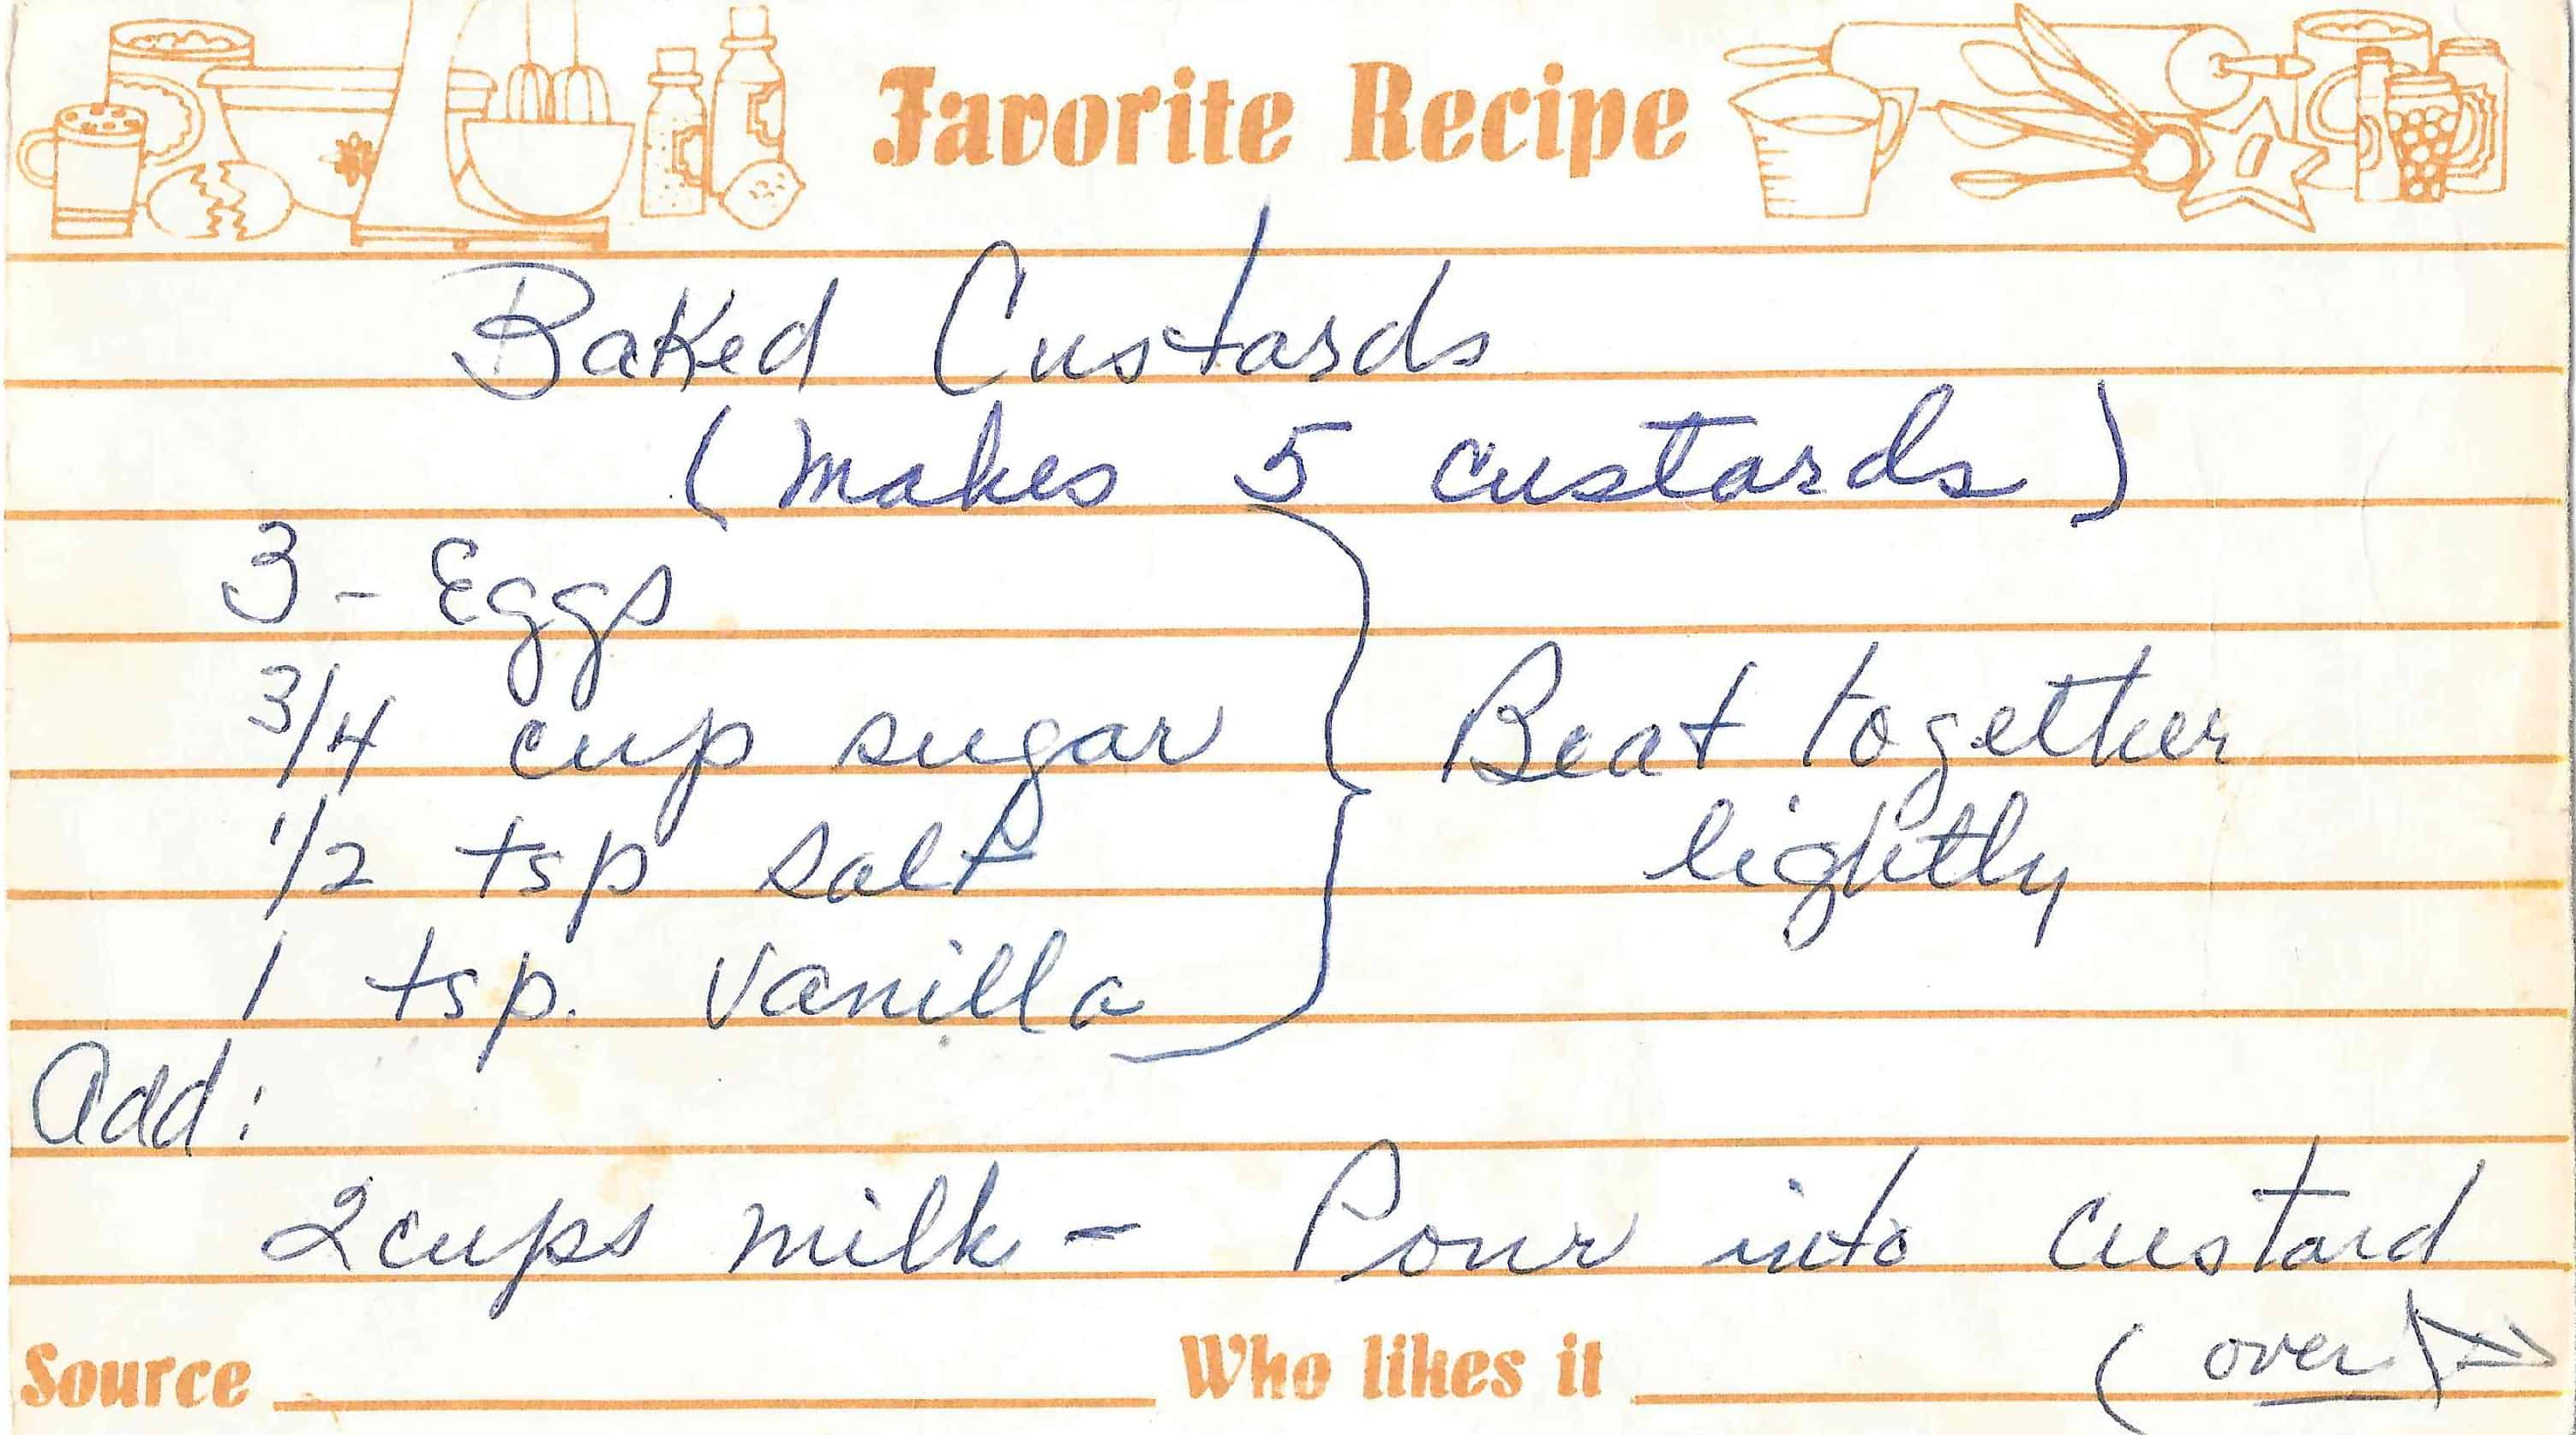 Favorite Recipe
Baked Custards
(makes 5 custards)
3 - Eggs
3/4 cup sugar
Beat together
1/2 tsp salt
lightly
1 tsp. vanilla
Add:
2 cups milk - Pour into custard
(over)
Source
Who likes it